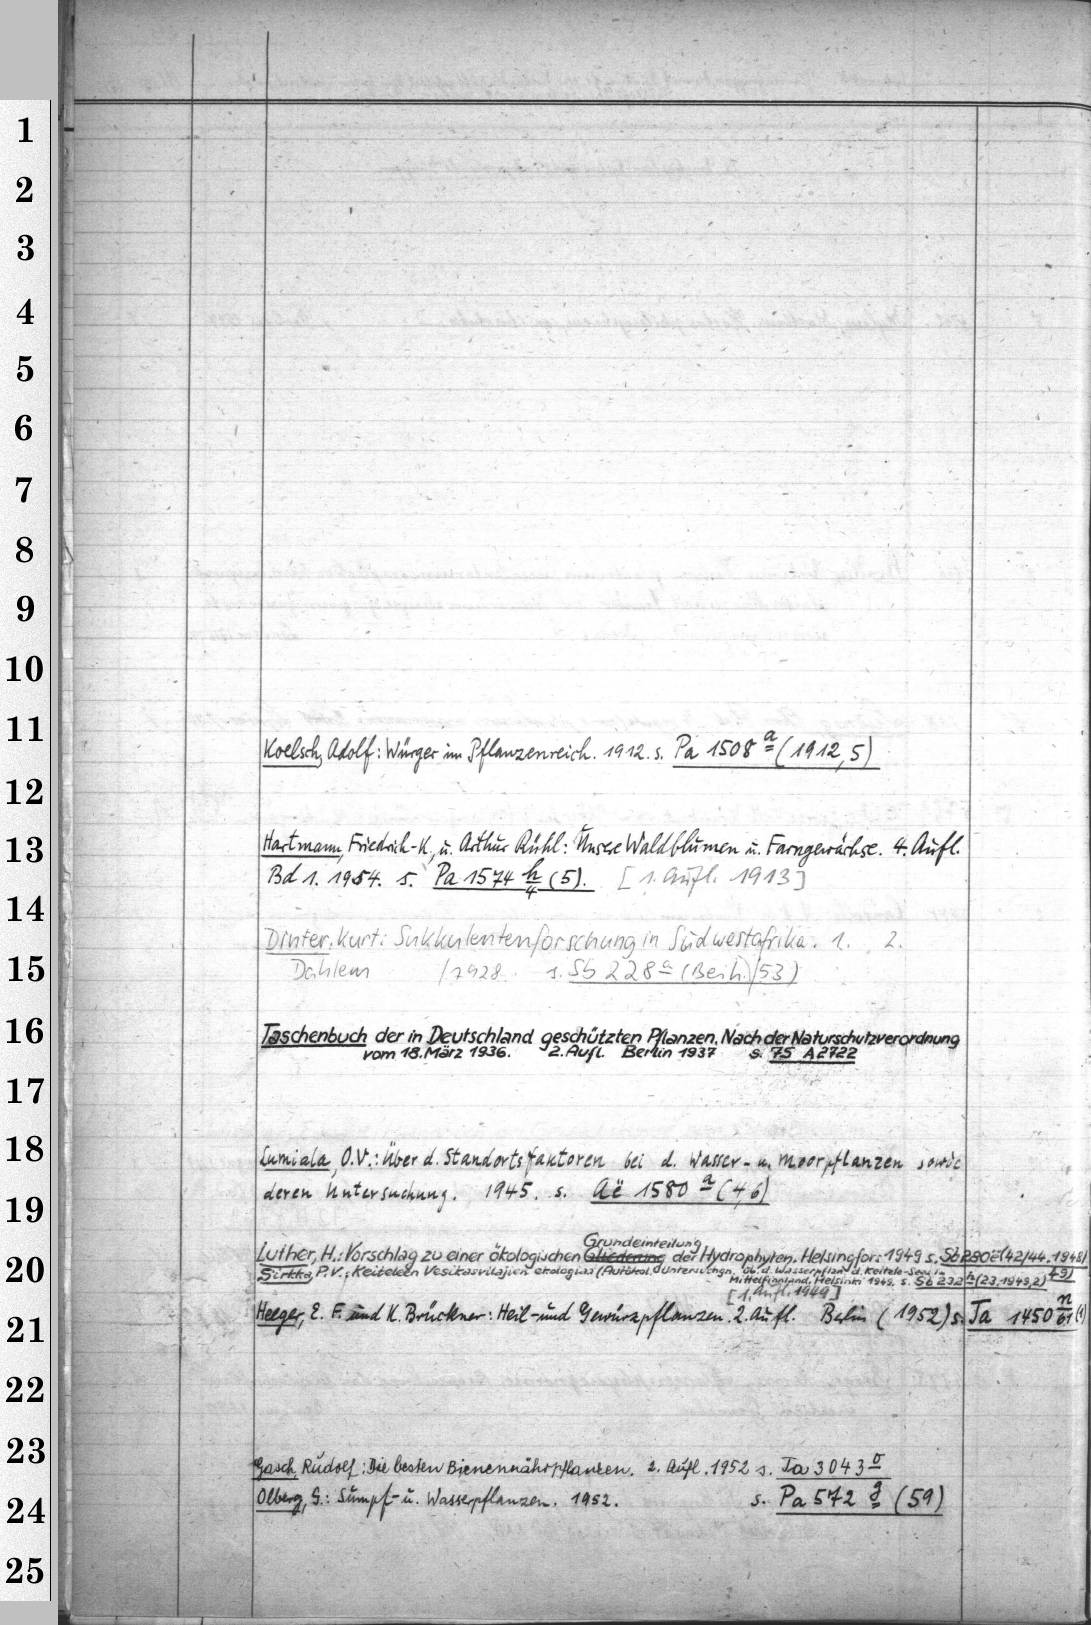 1
2
3
4
5
6
7
8
9
10
11
Koelsch, Adolf: Würger im Pflanzenreich. 1912. s. Pa 1508 a (1912,5)
12
13
Hartmann, Friedrich-K., u. Arthur Rühl: Unsere Waldblumen u. Farngewächse. 4. Aufl.
Bd 1. 1954. s. Pa 1574 h/4 (5). [1. Aufl. 1913]
14
Dinter, Kurt: Sukkulentenforschung in Südwestafrika. 1. 2.
15
Dahlem /1928. s. Sb 228 a (Beih. 53)
16
Taschenbuch der in Deutschland geschützten Pflanzen. Nach der Naturschutzverordnung
vom 18. März 1936. 2. Aufl. Berlin 1937 s. 75 A 2722
17
18
Lumiala, O.V.: Über d. Standortsfaktoren bei d. Wasser- u. Moorpflanzen sowie
deren Untersuchung. 1945. s. Aë 1580 a (4,6)
19
Grundeinteilung
Luther, H.: Vorschlag zu einer ökologischen Gliederung der Hydrophyten. Helsingfors 1949 s. (42/44. 1948/49)
20
Sirkka, P.V.: Keiteleen Vesikasvilajien ekologiaa (Autökol. Untersuchgn. üb. d. Wasserpflzn d. Keitele-Sees in
Mittelfinnland, Helsinki 1949. s. Sb 232 h (23,1949,2)
[1. Aufl. 1949]
Heeger, E. F. und K. Brückner: Heil- und Gewürzpflanzen. 2. Aufl. Berlin (1952) s. Ja 1450 n/61
21
22
23
Gasch, Rudolf: Die besten Bienennährpflanzen. 2. Aufl. 1952 s. Ja 3043 o
Olberg, G.: Sumpf- u. Wasserpflanzen. 1952. s. Pa 572 g (59)
24
25